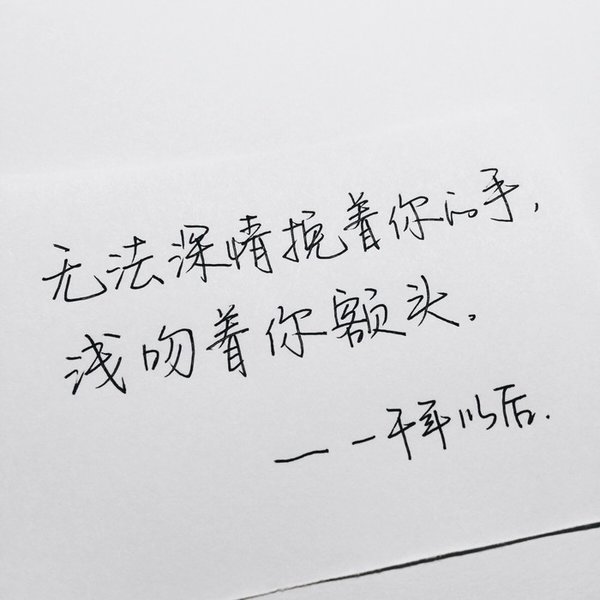 无法深情挽着你的手,
浅吻着你额头。
——一千年以后.